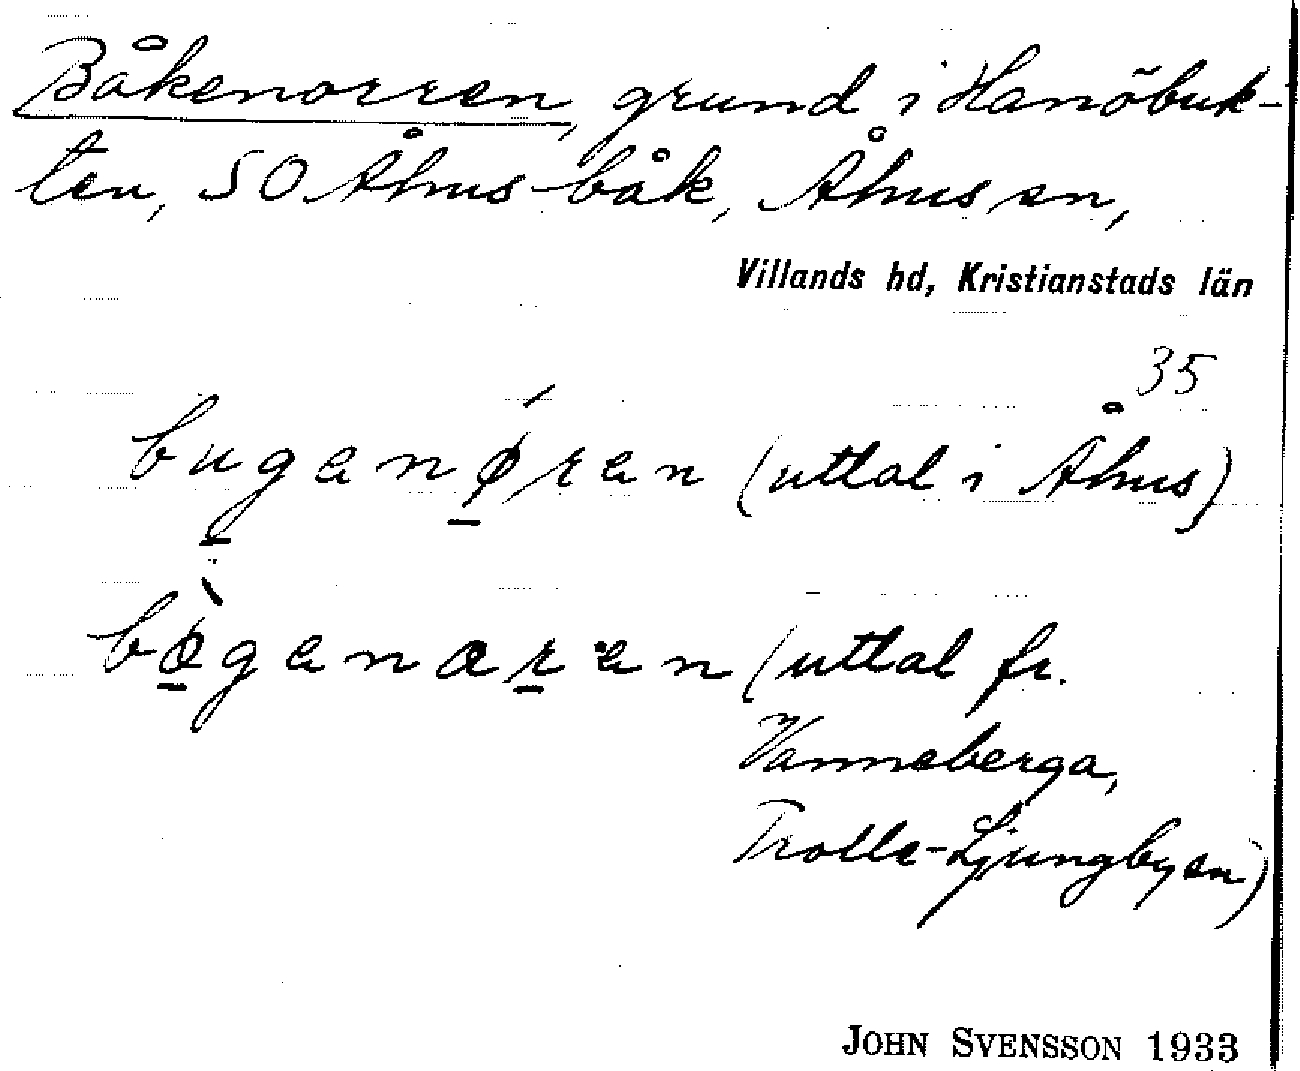 Båkenorren, grund i Hanöbuk-
ten, SO Åhus båk, Åhus sn,
Villands hd, Kristianstads län
35
buganǿ̱ren (uttal i Åhus)
bò̱ganar̠en (uttal fr.
Vanneberga,
Trolle-Ljungby sn)
JOHN SVENSSON 1933